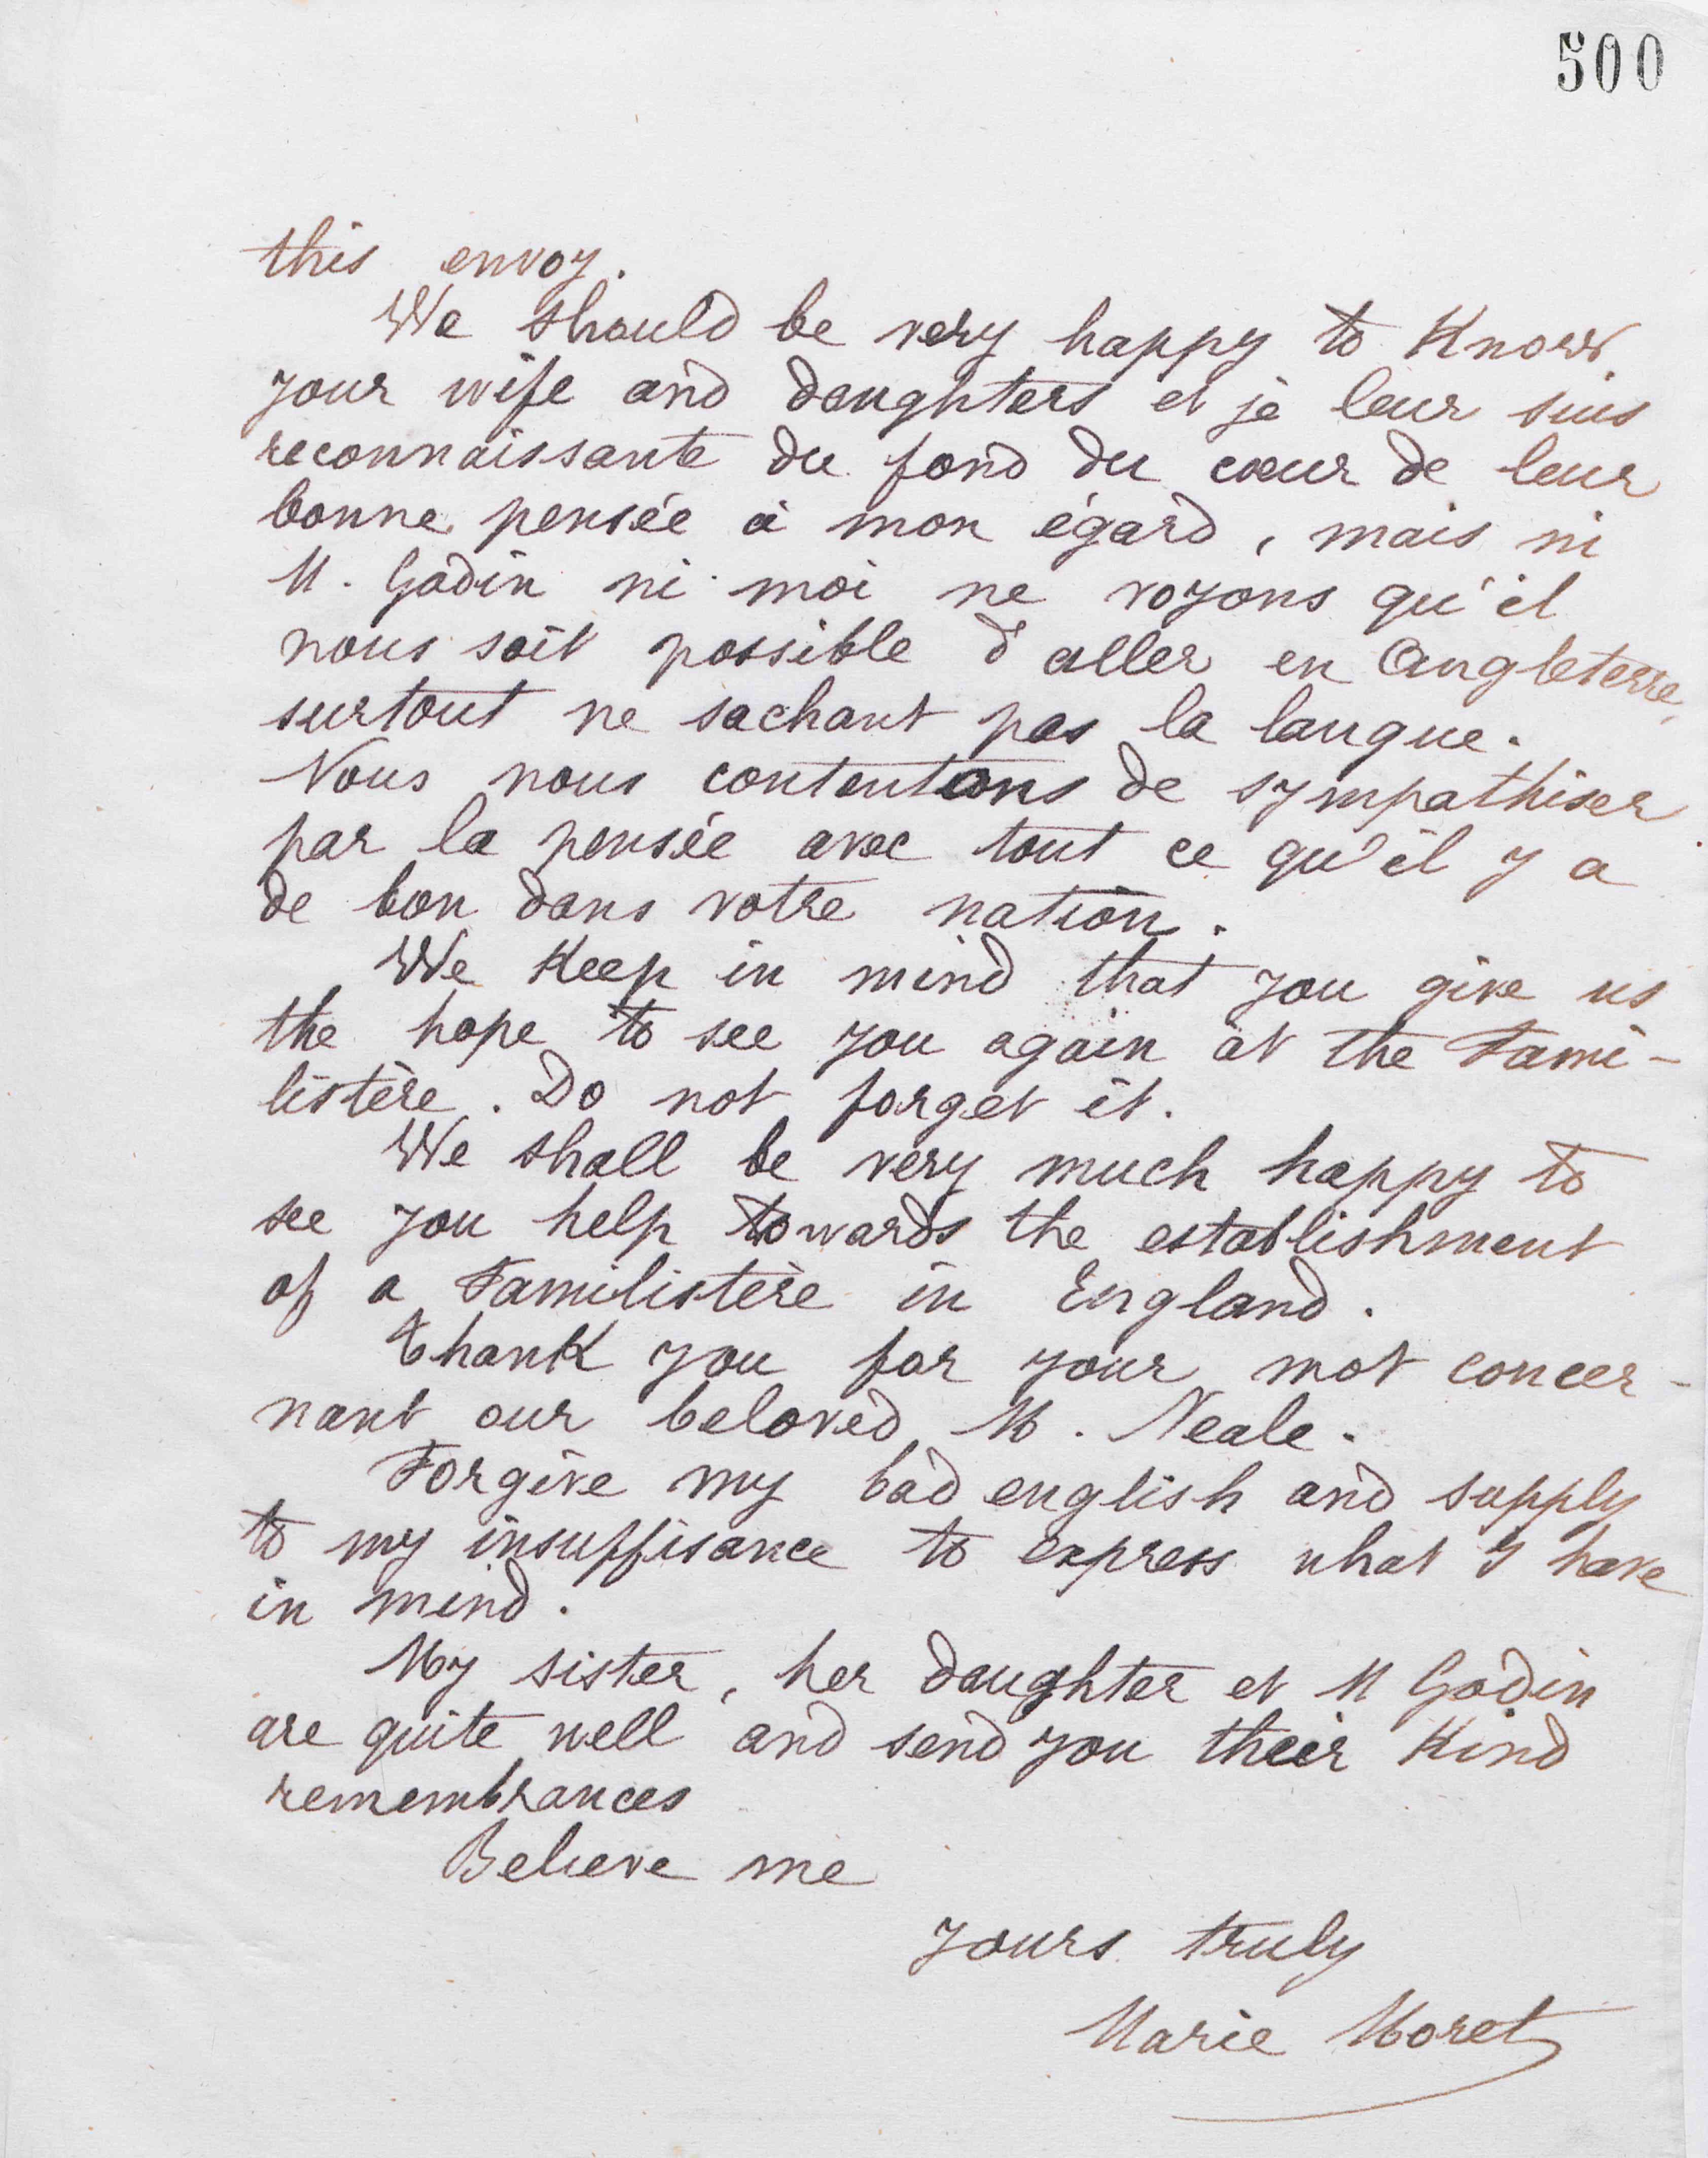 500
this envoy.
We should be very happy to Know
your wife and daughters et je leur suis
reconnaissante du fond du cœur de leur
bonne pensée à mon égard, mais ni
M. Godin ni moi ne voyons qu'il
nous soit possible d'aller en Angleterre,
surtout ne sachant pas la langue.
Nous nous contentons de sympathiser
par la pensée avec tout ce qu'il y a
de bon dans votre nation.
We Keep in mind that you give us
the hope to see you again at the Fami-
listère. Do not forget it.
We shall be very much happy to
see you help towards the establishment
of a Familistère in England.
Thank you for your mot concer-
nant our beloved M. Neale.
Forgive my bad english and supply
to my insuffisance to express what I have
in mind.
My sister, her daughter et M Godin
are quite well and send you their Kind
remembrances
Believe me
yours truly
Marie Moret